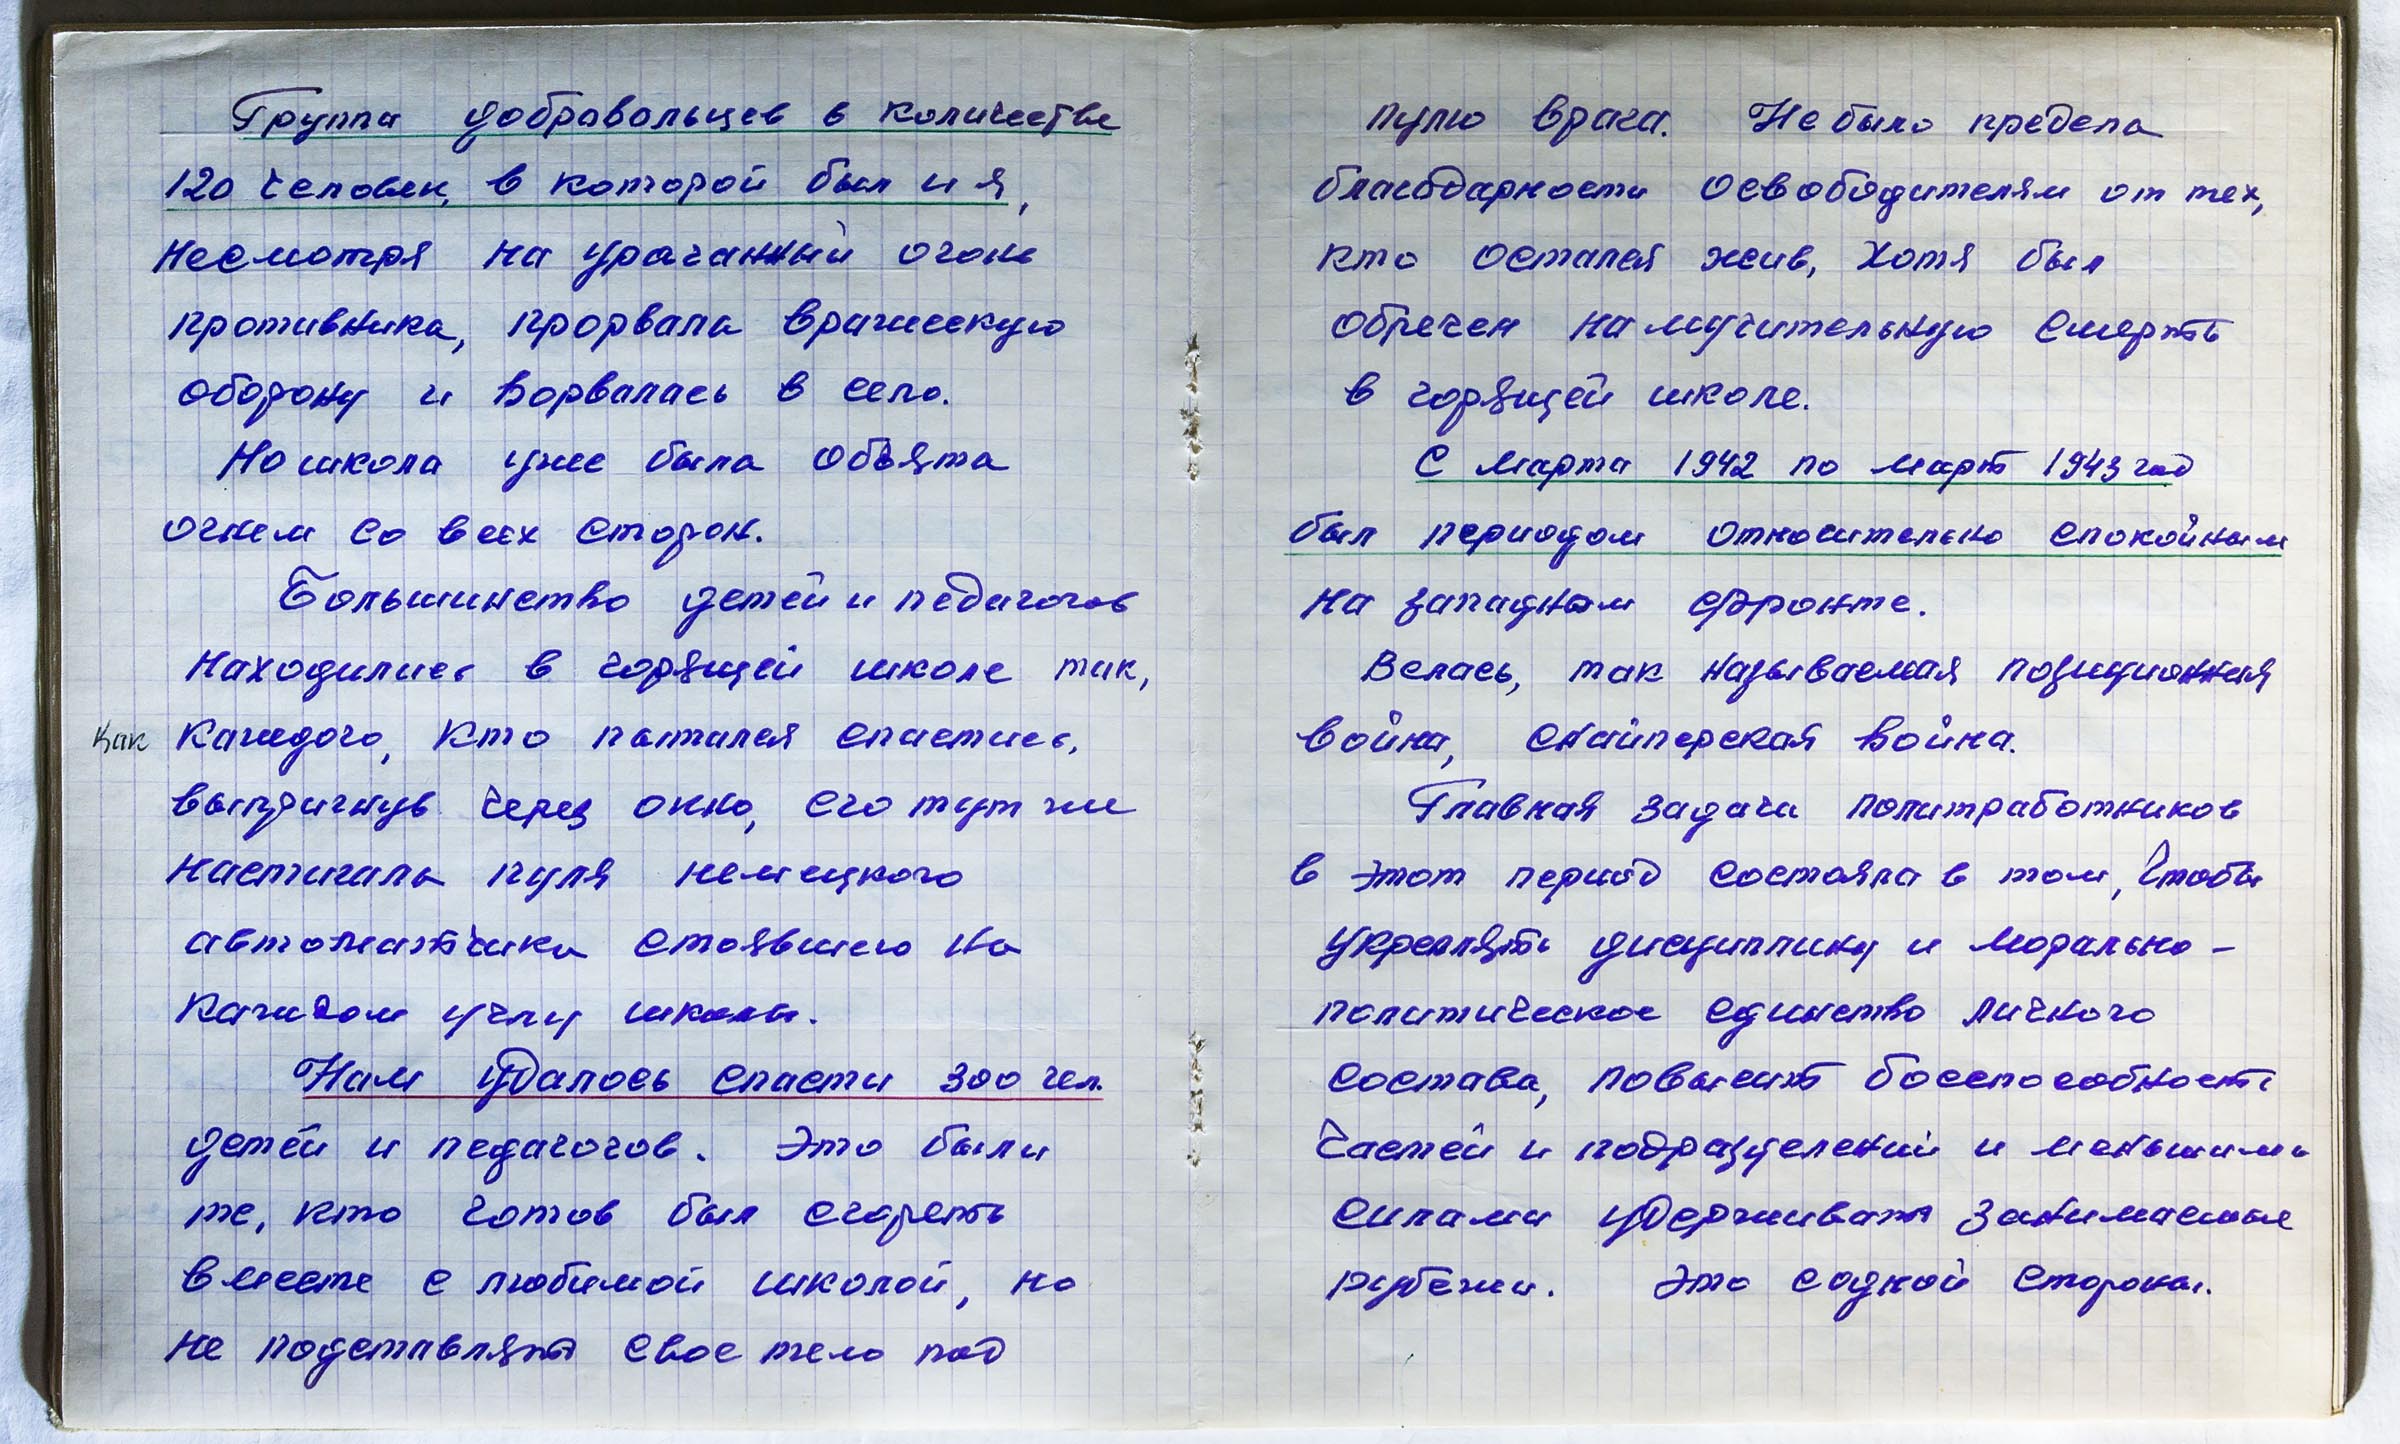 Группа добравольцев в количестве
120 человек, в которой был и я,
несмотря на ураганный огонь
противника, прорвала вражескую
оборону и ворвалась в село.
Но школа уже была объята
огнем со всех сторон.
Большинство детей и педагогов
находились в горящей школе так,
как каждого, кто пытался спастись,
выпрыгнув через окно, его тут же
настигала пуля немецкого
автоматчика стоявшего на
каждом углу школы.
Нам удалось спасти 300 чел.
детей и педагогов. Это были
те, кто готов был сгореть
вместе с любимой школой, но
не подставлять свое тело под
пулю врага. Не было предела
благодарности освободителям от тех,
кто остался жив, хотя был
обречен на мучительную смерть
в горящей школе.
С марта 1942 по март 1943 год
был периодом относительно спокойным
на западном фронте.
Велась, так называемая позиционная
война, снайперская война.
Главная задача политработников
в этот период состояла в том, чтобы
укреплять дисциплину и морально-
политическое единство личного
состава, повысить боеспособность
частей и подразделений и меньшими
силами удерживать занимаемые
рубежи. Это с одной стороны.